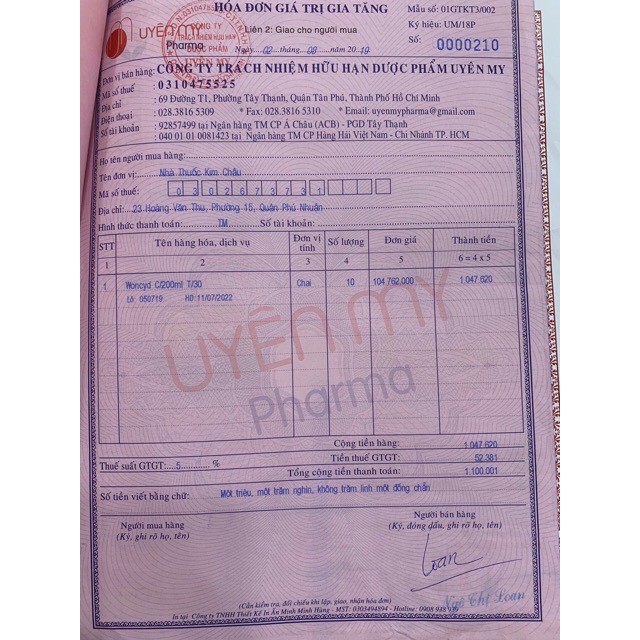 HÓA ĐƠN GIÁ TRỊ GIA TĂNG
Liên 2: Giao cho người mua
Ngày 02 tháng 08 năm 2019
Mẫu số: 01GTKT3/002
Ký hiệu: UM/18P
Số: 0000210
UYÊN MY
Pharma
CÔNG TY
TRÁCH NHIỆM HỮU HẠN
DƯỢC PHẨM
UYÊN MY
Đơn vị bán hàng: CÔNG TY TRÁCH NHIỆM HỮU HẠN DƯỢC PHẨM UYÊN MY
Mã số thuế : 0310475525
Địa chỉ : 69 Đường T1, Phường Tây Thạnh, Quận Tân Phú, Thành Phố Hồ Chí Minh
Điện thoại : 028.3816 5309 * Fax: 028.3816 5310 * Email: uyenmypharma@gmail.com
Số tài khoản : 92857499 tại Ngân hàng TM CP Á Châu (ACB) - PGD Tây Thạnh
: 040 01 01 0081423 tại Ngân hàng TM CP Hàng Hải Việt Nam - Chi Nhánh TP. HCM
Họ tên người mua hàng:
Tên đơn vị: Nhà Thuốc Kim Châu
Mã số thuế: 0302673731
Địa chỉ: 23 Hoàng Văn Thụ, Phường 15, Quận Phú Nhuận
Hình thức thanh toán: TM Số tài khoản:
STT Tên hàng hóa, dịch vụ Đơn vị tính Số lượng Đơn giá Thành tiền
1 2 3 4 5 6 = 4 x 5
1 Woncyd C/200ml T/30 Chai 10 104.762.000 1.047.620
Lô: 050719 HD:11/07/2022
UYÊN MY
Pharma
Cộng tiền hàng: 1.047.620
Thuế suất GTGT: 5 % Tiền thuế GTGT: 52.381
Tổng cộng tiền thanh toán: 1.100.001
Số tiền viết bằng chữ: Một triệu, một trăm nghìn, không trăm linh một đồng chẵn
Người mua hàng Người bán hàng
(Ký, ghi rõ họ, tên) (Ký, đóng dấu, ghi rõ họ, tên)
Loan
(Cần kiểm tra, đối chiếu khi lập, giao, nhận hóa đơn)
In tại Công ty TNHH Thiết Kế In Ấn Minh Minh Hùng - MST: 0303494894 - Hotline: 0908 938 939